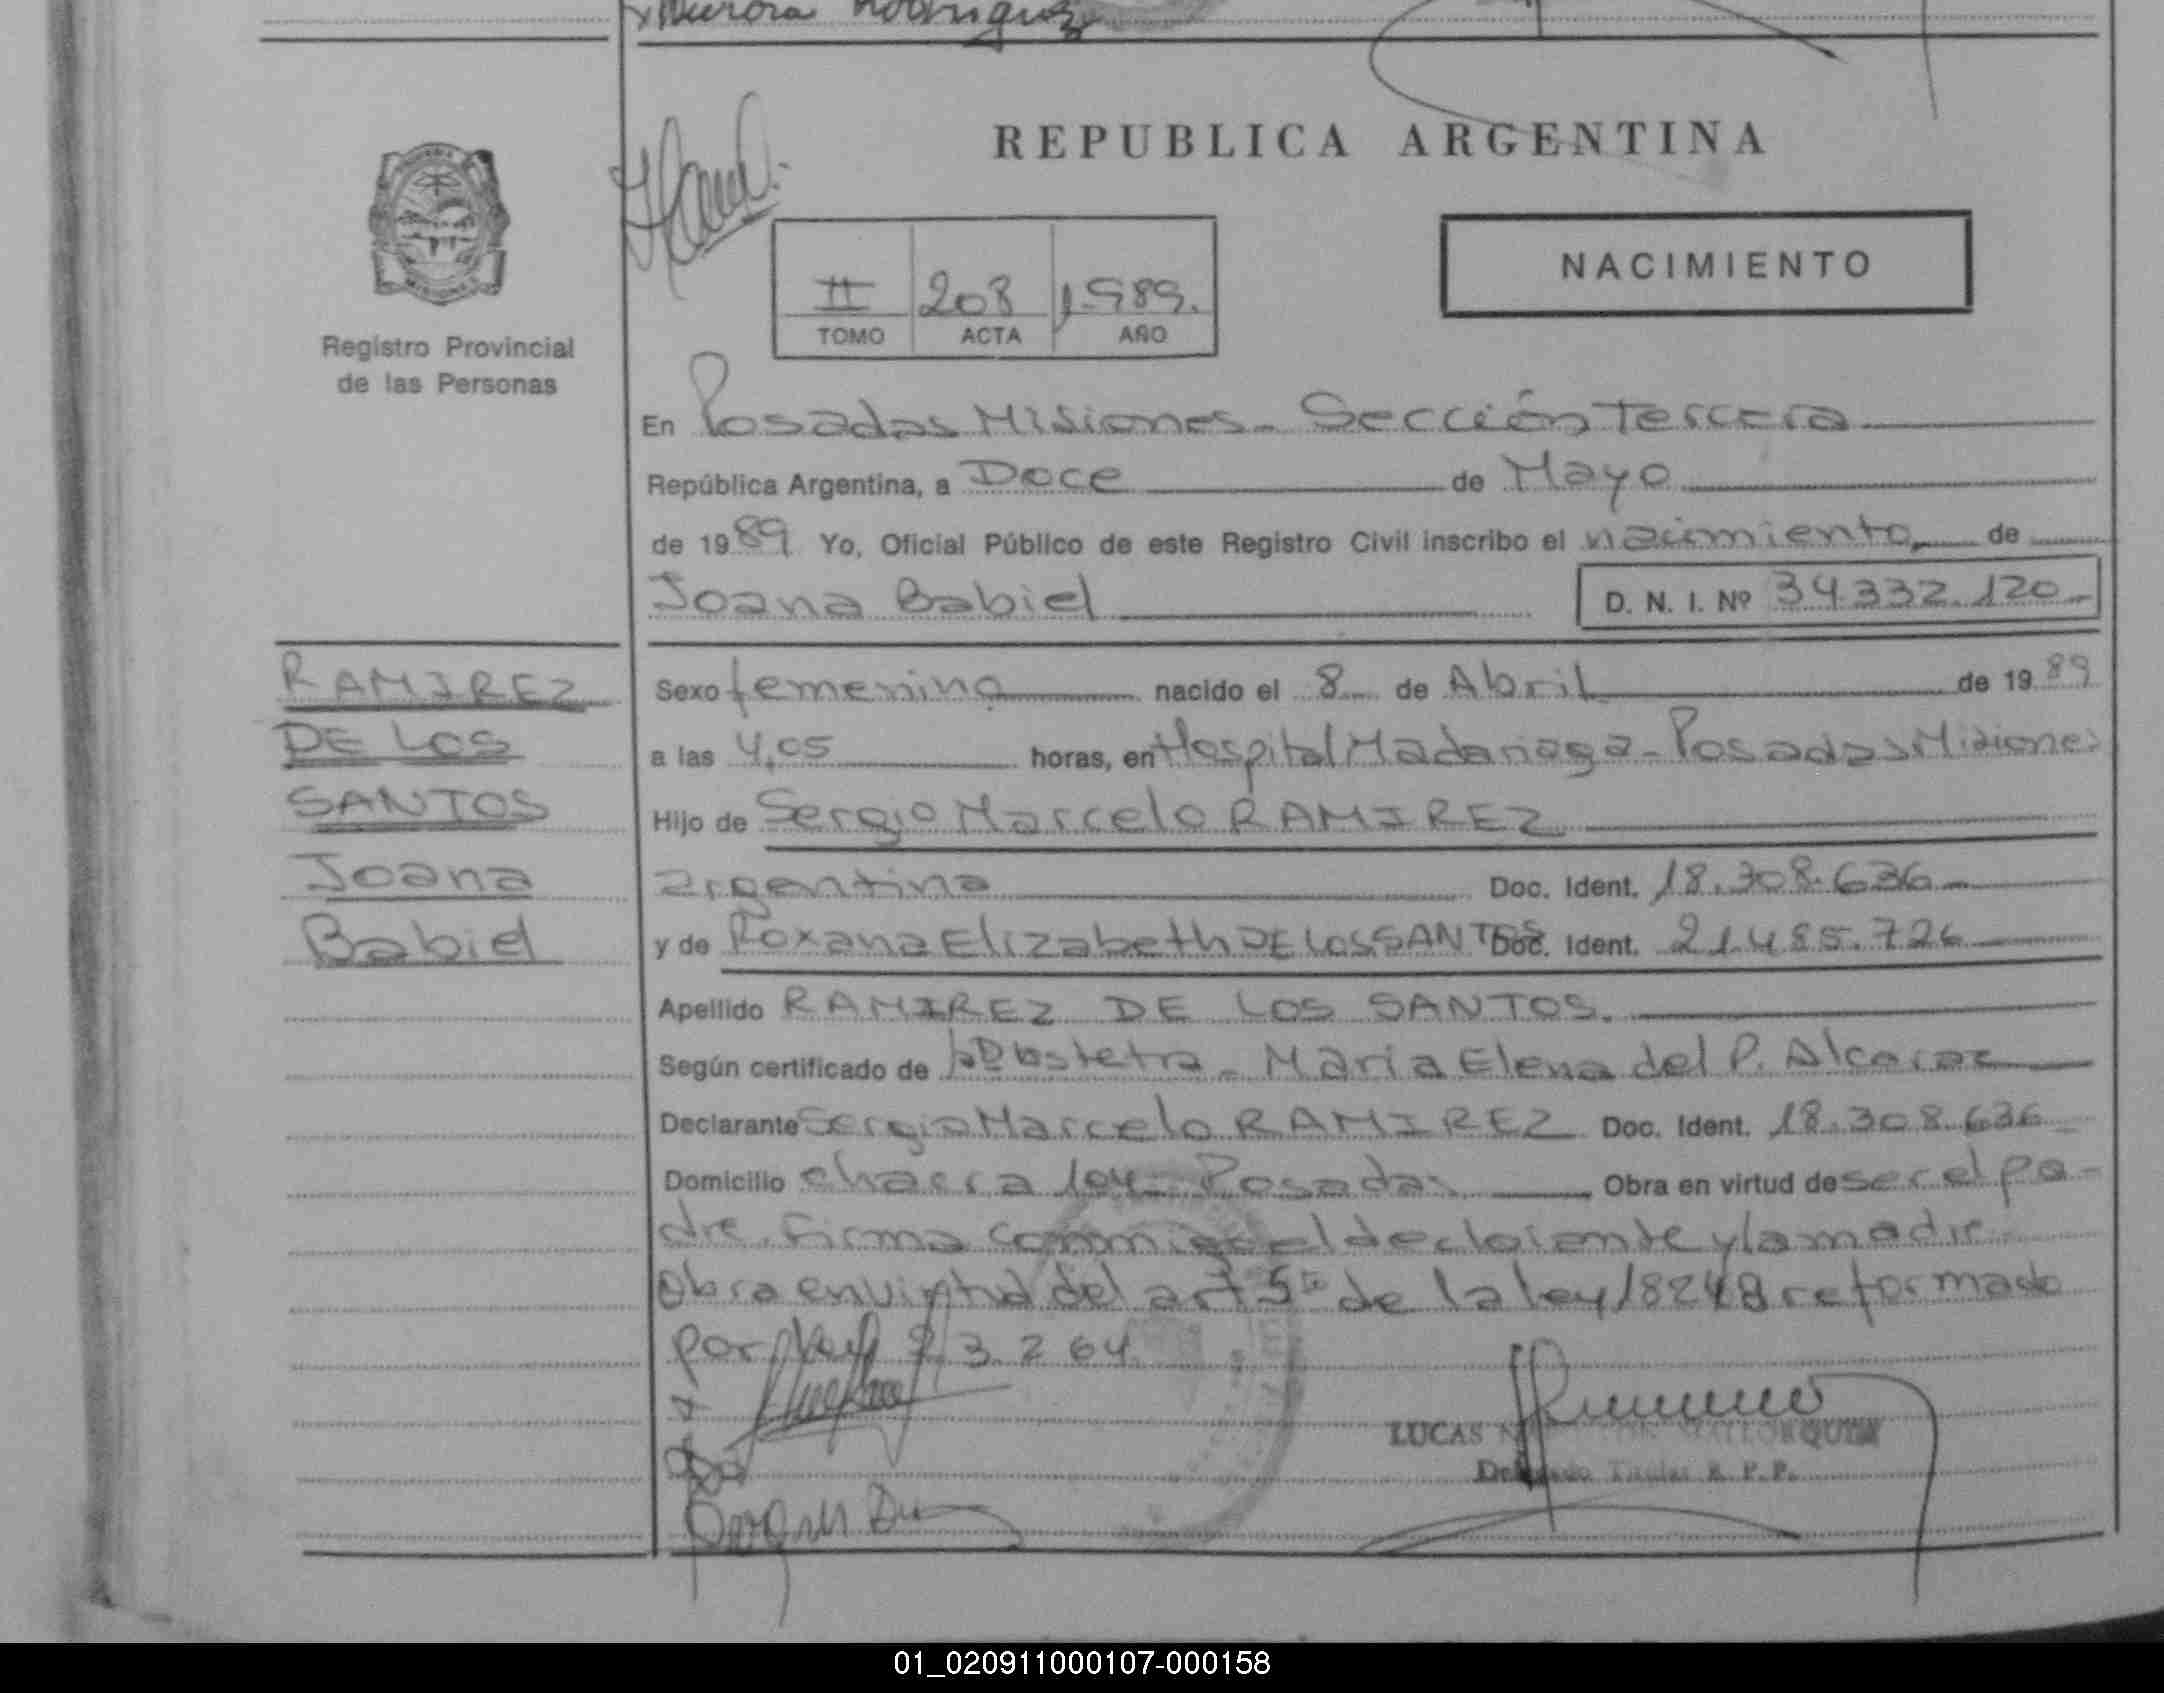 Aurora Rodriguez
REPUBLICA ARGENTINA
NACIMIENTO
II 208 1989.
TOMO ACTA AÑO
Registro Provincial
de las Personas
En Posadas Misiones - Sección Tercera
República Argentina, a Doce de Mayo
de 1989 Yo, Oficial Público de este Registro Civil inscribo el nacimiento de
Joana Babiel D. N. I. Nº 34.332.120-
RAMIREZ
DE LOS
SANTOS
Joana
Babiel
Sexo femenino nacido el 8 de Abril de 1989
a las 4,05 horas, en Hospital Madariaga - Posadas Misiones
Hijo de Sergio Marcelo RAMIREZ
argentino Doc. Ident. 18.308.636
y de Roxana Elizabeth DE LOS SANTOS Doc. Ident. 21.485.726
Apellido RAMIREZ DE LOS SANTOS.
Según certificado de Obstetra - Maria Elena del P. Alcaraz
Declarante Sergio Marcelo RAMIREZ Doc. Ident. 18.308.636
Domicilio chacra 104 Posadas Obra en virtud de ser el pa-
dre. Firma conmigo el declarante y la madre
obra en virtud del art 5º de la ley 18248 reformado
por ley 23.264
LUCAS
Delegado Titular R. P. P.
01_020911000107-000158